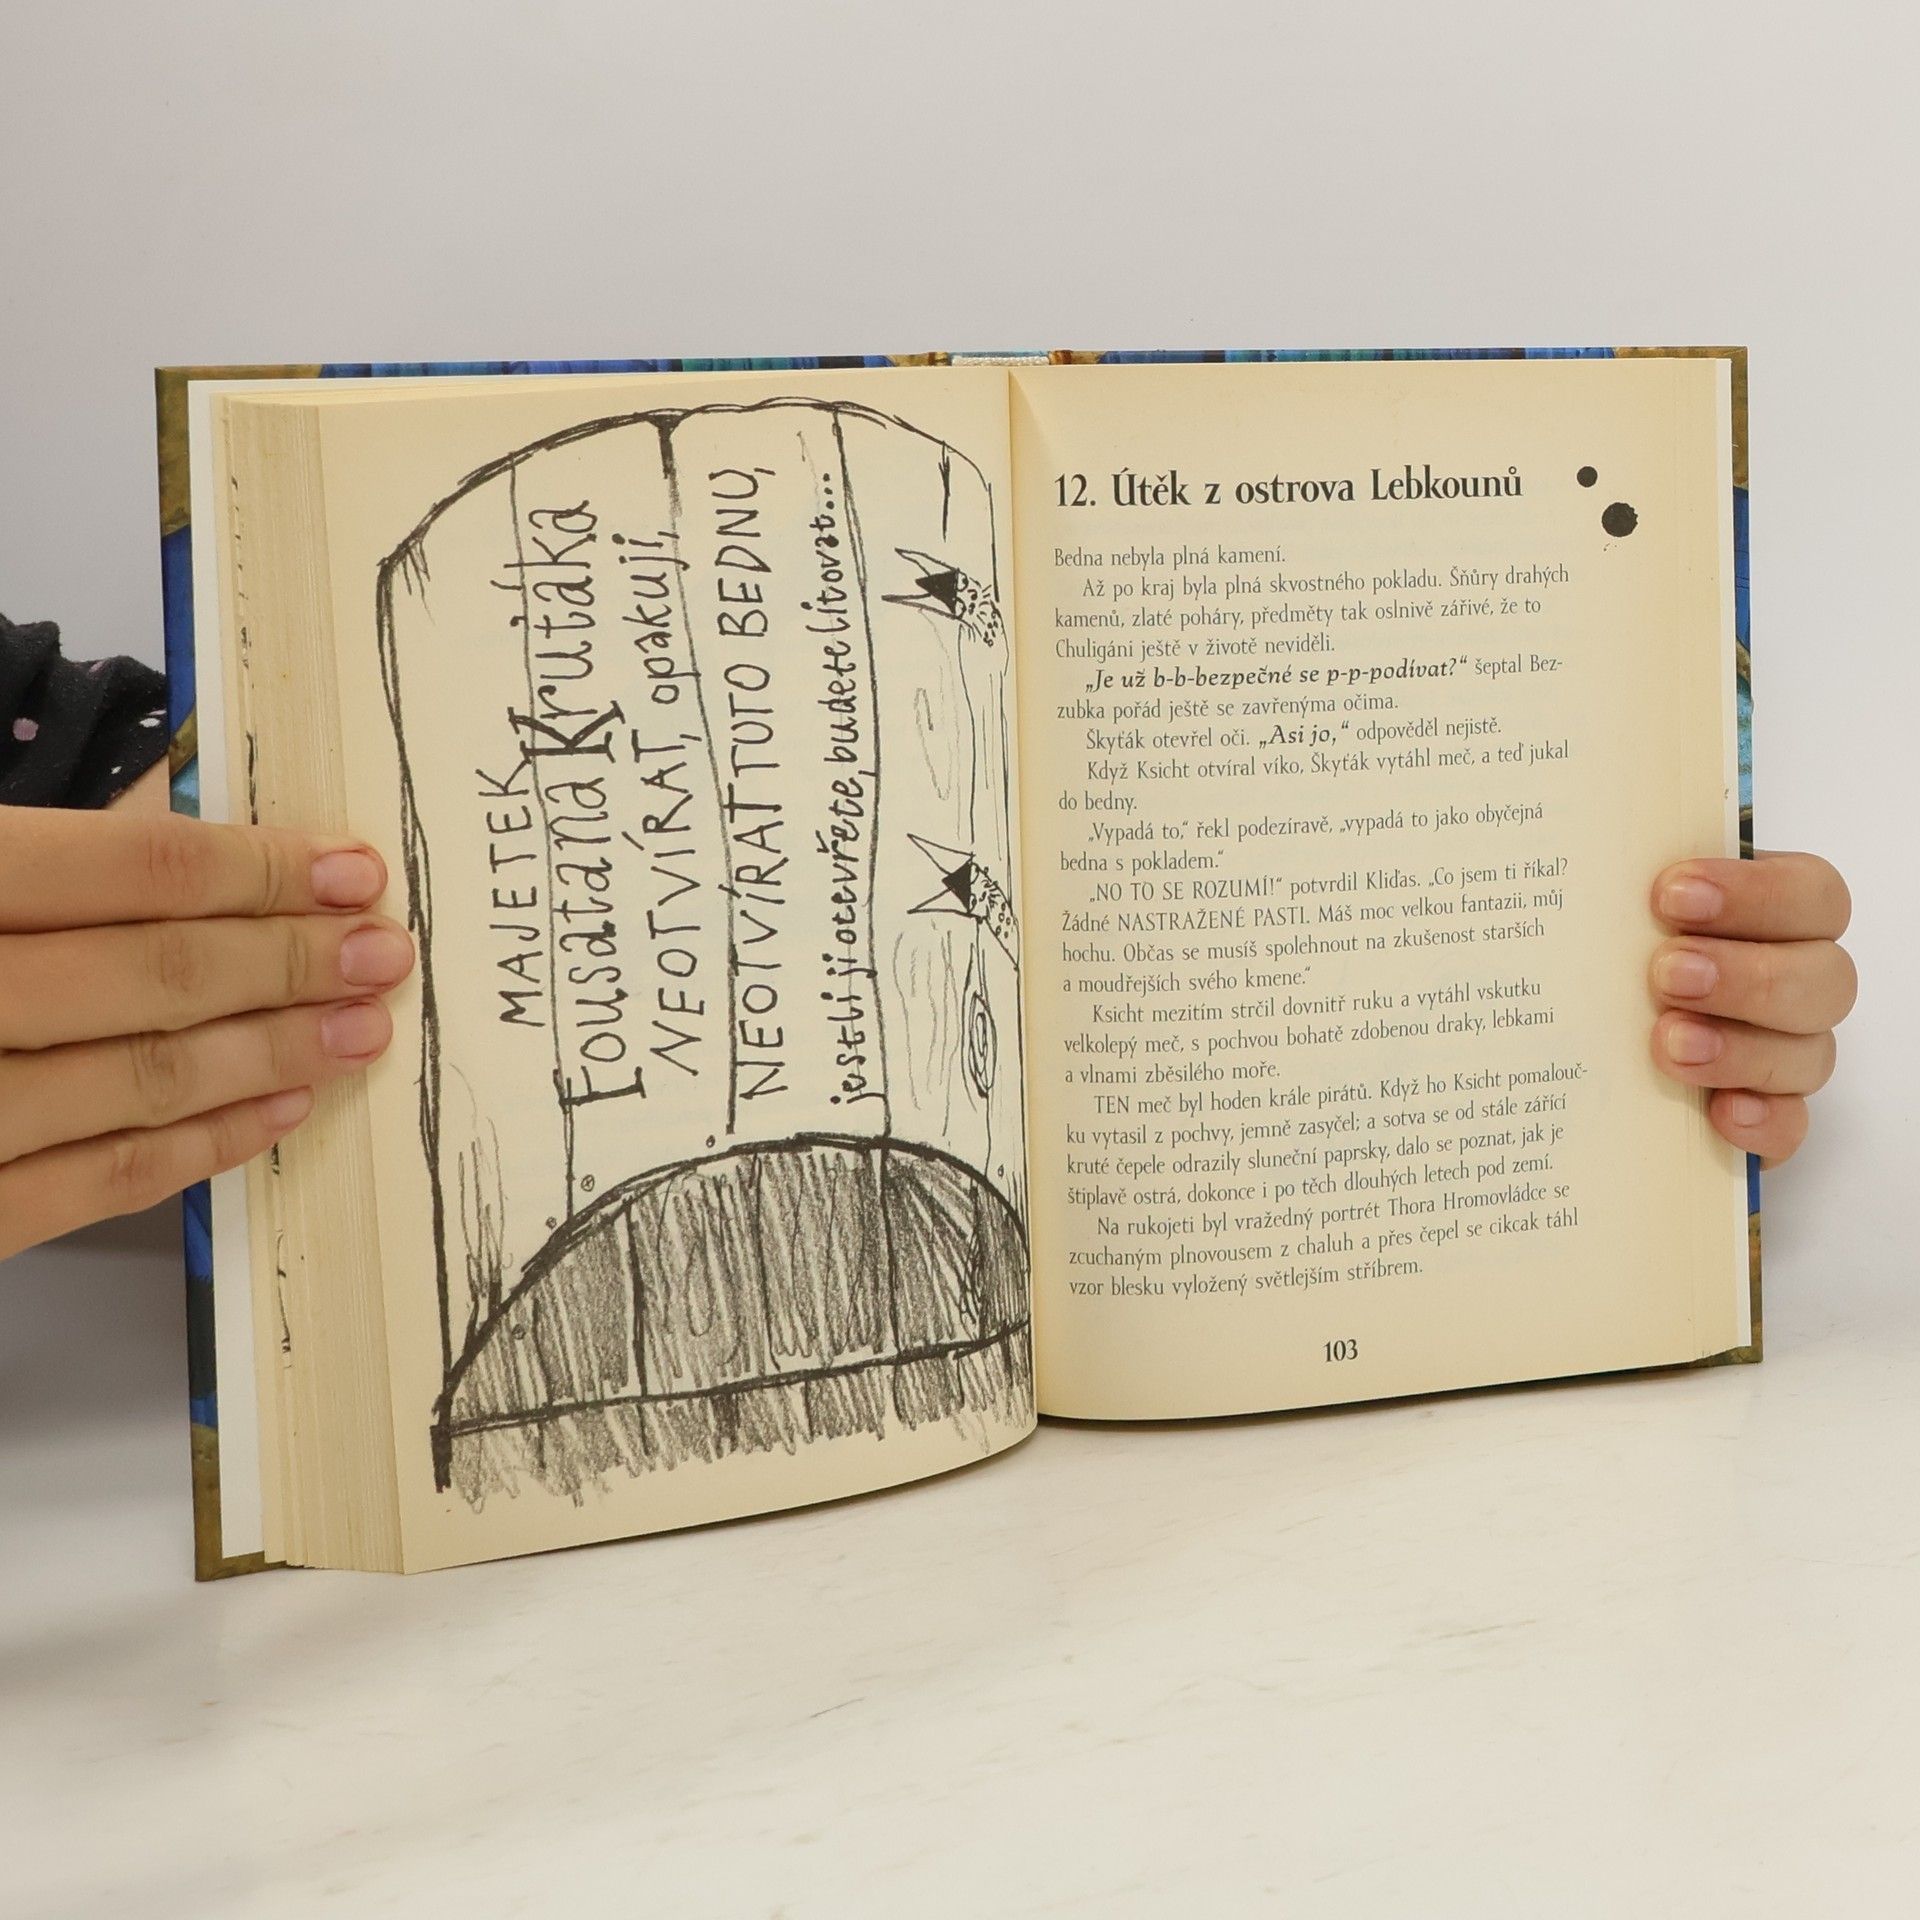 MAJETEK
Fousatána Krutáka
NEOTVÍRAT, opakuji,
NEOTVÍRAT TUTO BEDNU,
jestli ji otevřete, budete litovat...
12. Útěk z ostrova Lebkounů
Bedna nebyla plná kamení.
Až po kraj byla plná skvostného pokladu. Šňůry drahých
kamenů, zlaté poháry, předměty tak oslnivě zářivé, že to
Chuligáni ještě v životě neviděli.
„Je už b-b-bezpečné se p-p-podívat?“ šeptal Bez-
zubka pořád ještě se zavřenýma očima.
Škyťák otevřel oči. „Asi jo,“ odpověděl nejistě.
Když Ksicht otvíral víko, Škyťák vytáhl meč, a teď jukal
do bedny.
„Vypadá to,“ řekl podezíravě, „vypadá to jako obyčejná
bedna s pokladem.“
„NO TO SE ROZUMÍ!“ potvrdil Kliďas. „Co jsem ti říkal?
Žádné NASTRAŽENÉ PASTI. Máš moc velkou fantazii, můj
hochu. Občas se musíš spolehnout na zkušenost starších
a moudřejších svého kmene.“
Ksicht mezitím strčil dovnitř ruku a vytáhl vskutku
velkolepý meč, s pochvou bohatě zdobenou draky, lebkami
a vlnami zběsilého moře.
TEN meč byl hoden krále pirátů. Když ho Ksicht pomalouč-
ku vytasil z pochvy, jemně zasyčel; a sotva se od stále zářící
kruté čepele odrazily sluneční paprsky, dalo se poznat, jak je
štiplavě ostrá, dokonce i po těch dlouhých letech pod zemí.
Na rukojeti byl vražedný portrét Thora Hromovládce se
zcuchaným plnovousem z chaluh a přes čepel se cikcak táhl
vzor blesku vyložený světlejším stříbrem.
103